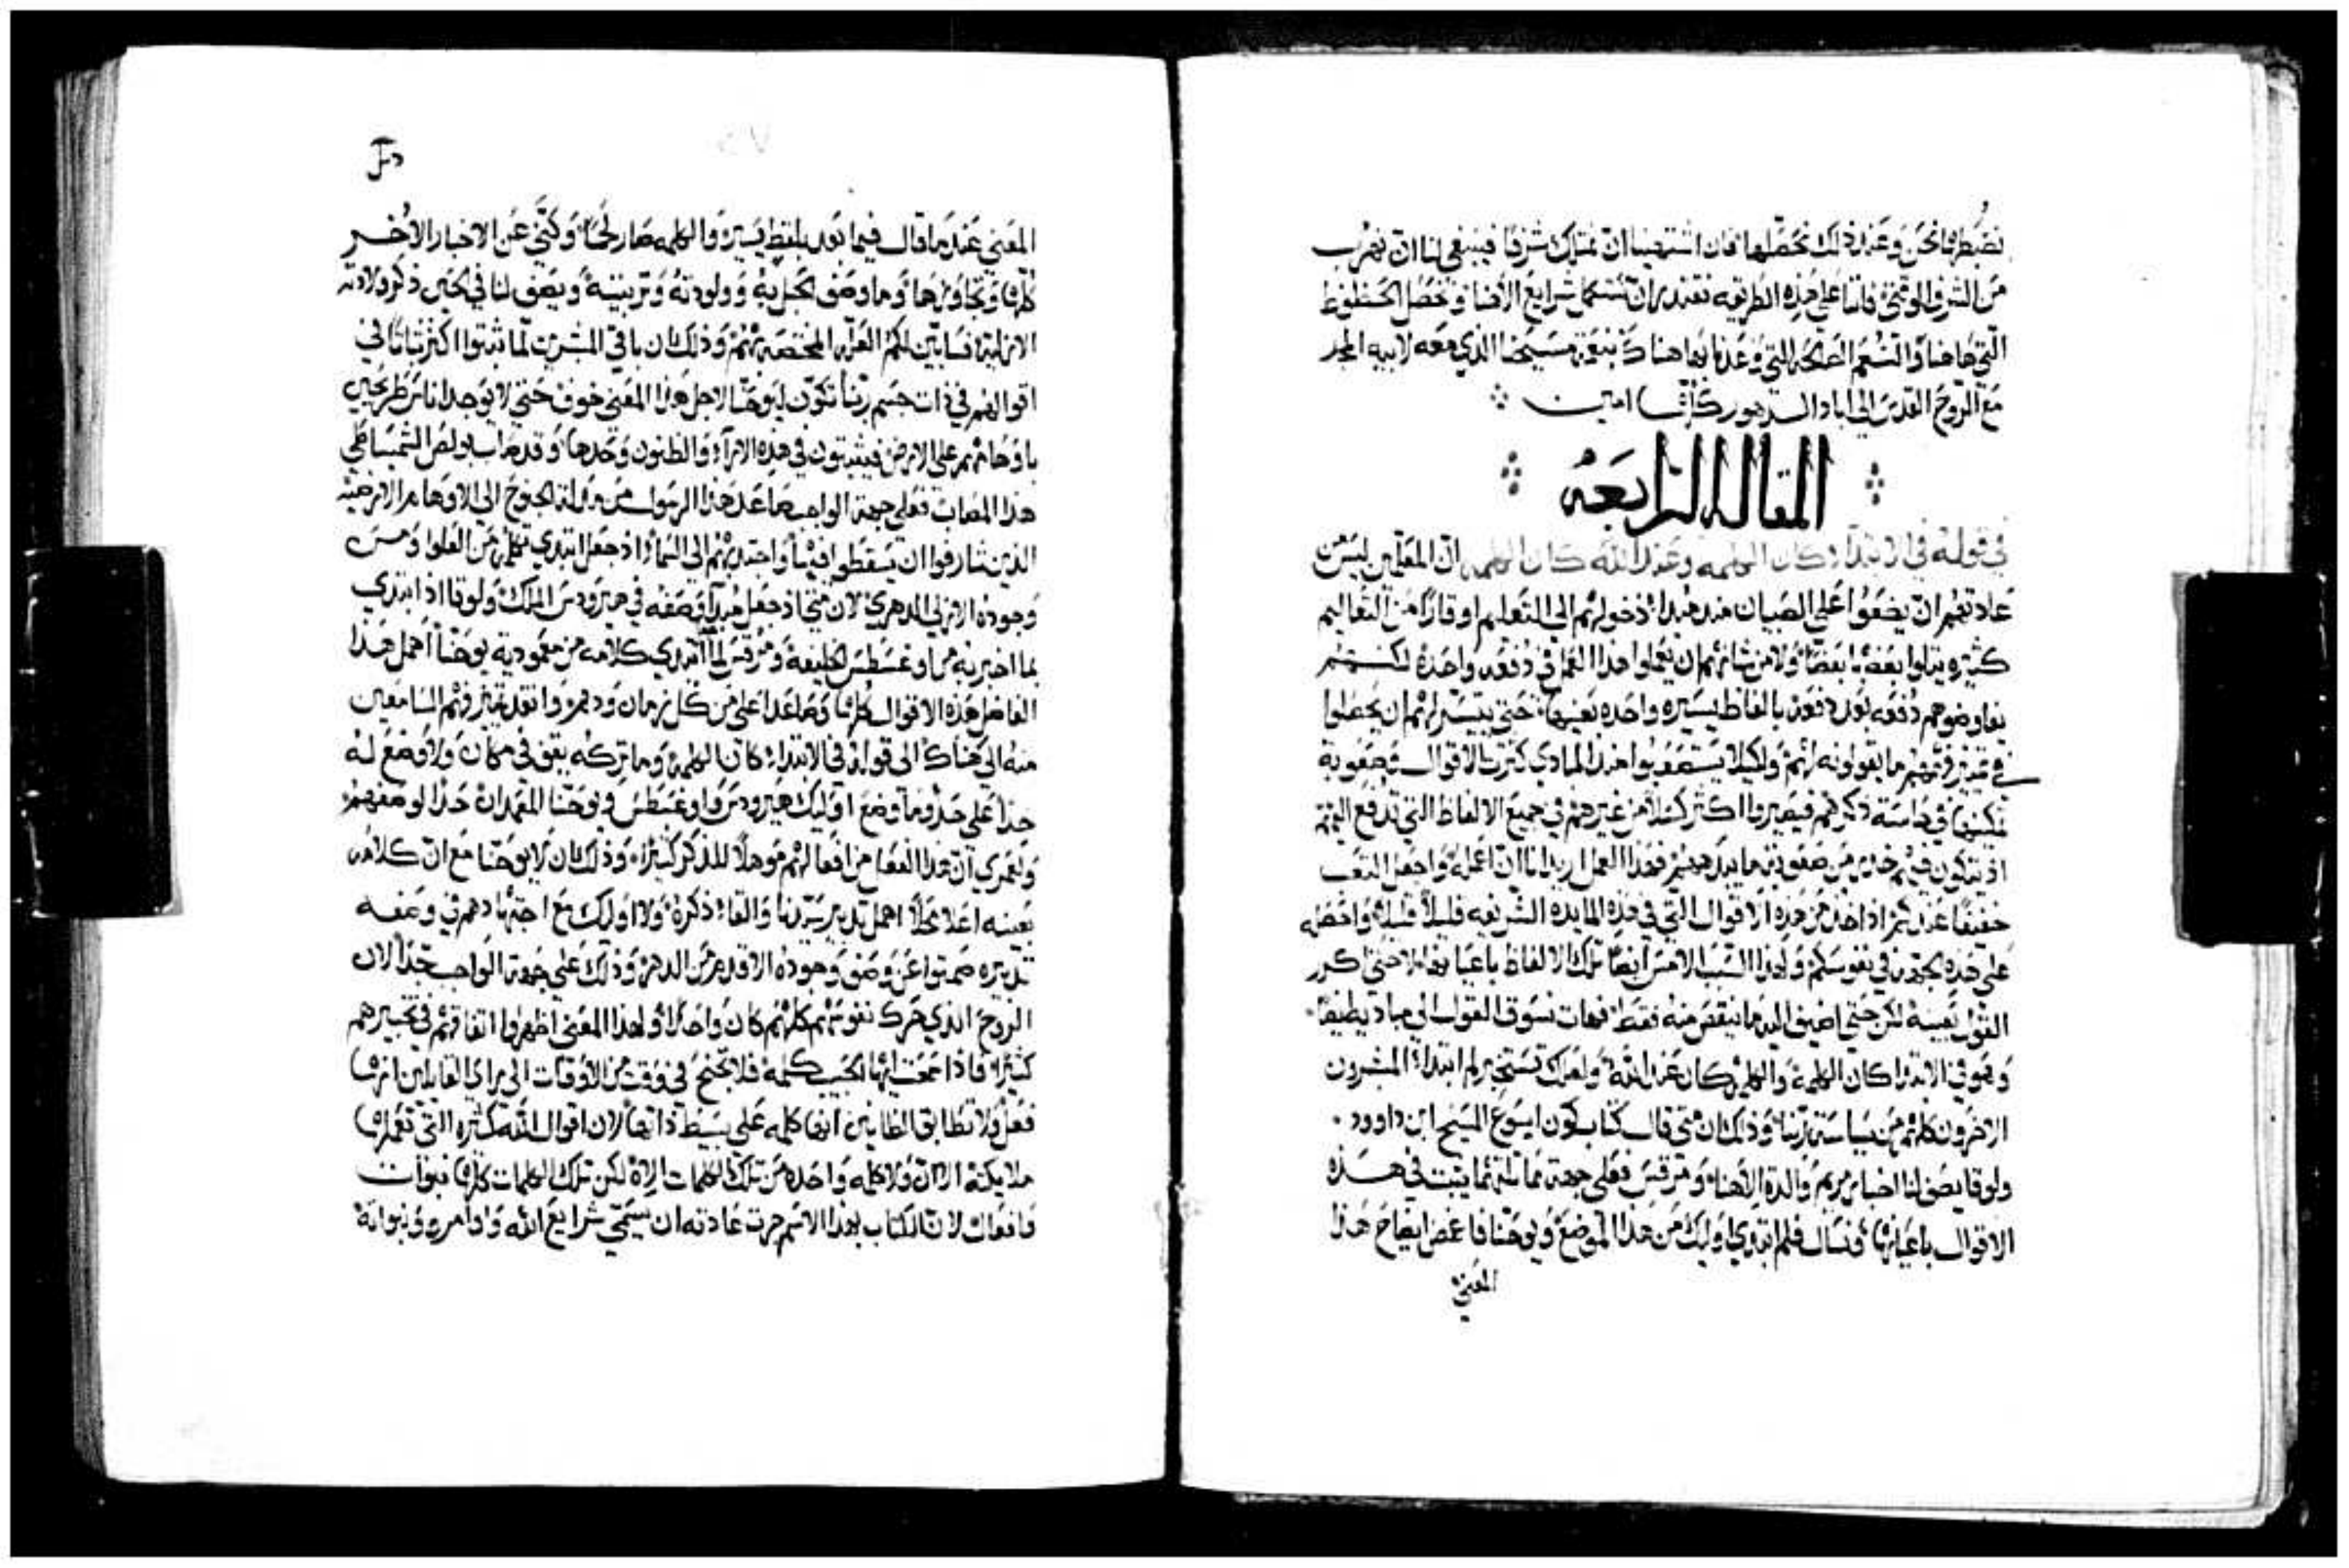 نضبطها نحن وعند ذلك نحصلها فان اشتهينا ان نمتلك شرفا فينبغي لنا ان نهرب
من الشرف الوقتي فاننا على هذه الطريقه نقتدر ان نستكمل شرايع الاهنا ونحصل الحظوظ
التي هاهنا والنعم الصالحه التي وعدنا بها هناك بنعمة مسيحنا الذي معه لابيه المجد
مع الروح القدس الى اباد الدهور كلها امين
المقاله الرابعه
في قوله في الابتداء كان الكلمه وعند الله كان الكلمه ان المعلمين ليس من
عادتهم ان يضعوا على الصبيان منذ مبدا دخولهم الى التعليم اوقارا من التعاليم
كثيره يتلوا بعضها بعضا ولا من شانهم ان يعملوا هذا العمل في دفعه واحده لكنهم
يفاوضوهم دفعه بعد دفعه بالفاظ يسيره واحده بعينها حتى يتيسر لهم ان يجعلوا
في تمييز فهمهم ما يقولونه لهم ولكيلا يستصعبوا منذ المبادي كثرة الاقوال وصعوبة
تمكينها في ذكرهم فيصيروا اكثر كسلا من غيرهم في جميع الالفاظ التي تدفع اليهم
اذ يتكون فيهم من صعوبة ما يدهمهم فهذا العمل اريد انا ان اعمله واجعل التعب
خفيفا عندكم اذ اخذ من هذه الاقوال التي في هذه المايده الشريفه قليلا قليلا واحصله
على هذه الجهه في نفوسكم ولهذا السبب الامس ايضا تلك الالفاظ باعيانها لا حتى اكرر
القول بعينه لكن حتى اضيف اليه ما نقص منه فقط فهات نسوق القول الى مباديه ايضا
وهو في الابتدا كان الكلمه والكلمه كان عند الله ولعلك تستخبر لم ابتداء المبشرون
الاخرون كلهم من سياسة ربنا وذلك ان متى قال كتاب كون ايسوع المسيح ابن داوود
ولوقا يصف لنا اخبار مريم والدة الاهنا ومرقس فعلى جهه مماثلتهما يثبت في هذه
الاقوال باعيانها ونسال فلم ابتدي اوليك من هذا الموضع ويوحنا فاغمض ايضاح هذا
المعني
المعني عندما قال فيما بعد بلفظ يسير والكلمه صار لحما وكنى عن الاخبار الاخر
كلها وتجاوزها وما وصف الحبل به وولودته وتربيته ويصف لنا في الحين ذكر ولادته
الازليه فسابين لكم العله المختصه بهم وذلك ان باقي المبشرين لما ثبتوا اكثر ثباتا في
اقوالهم في ذات جسم ربنا تكون ليوحنا لاجل هذا المعنى خوف حتى لا يوجد اناس طريحين
باوهامهم على الارض فيثبتون في هذه الاراء والظنون وحدها وقد صاب بولص الشميساطي
هذا المصاب فعلى جهه الواجب هذا الرسول من الجنوح الى الاوهام الارضيه
الذين شارفوا ان يسقطوا فيها واجتذبهم الى السماء اذ جعل ابتدي تكلمه من العلو ومن
وجوده الازلي الدهري لان متى اذ جعل مبدا وصفه في هيرودس الملك ولوقا اذ ابتدي
بما اخبر به من اوغسطس الخليفه ومرقس لما ابتدي كلامه من معمودية يوحنا اهمل هذا
الفاضل هذه الاقوال كلها وعلى من كل زمان ودهر وانقذ تمييز فهم السامعين
منه الى هناك الى قوله في الابتداء كان الكلمه وما تركه يقف في مكان ولا وضع له
حدا على حذو ما وضع اوليك هيرودس واوغسطس ويوحنا المعمدان حدا لوصفهم
ولعمري ان هذا الفعل من افعالهم موهلا للذكر كثيرا وذلك ان لا يوحنا مع ان كلامه
بعينه اعلا محلا اهمل تدبير سيدنا والقاء ذكره ولا اوليك مع اجتهادهم في وصف
تدبيره صمتوا عن وصف وجوده الاقدم من الدهر وذلك على جهة الواجب جدا لان
الروح الذي حرك نفوسهم كلهم كان واحدا ولهذا المعنى اظهروا اتفاقهم في تخبيرهم
كثيرا فاذا سمعت ايها الحبيب كلمه فلا تجنح في وقت من الاوقات الى راي القايلين انها
فعل ولا تطابق الظانين انها كلمه على بسيط ذاتها لان اقوال الله كثيره التي تعملها
ملايكته الا ان ولا كلمه واحده من تلك الكلمات الاه لكن تلك الكلمات كلها نبوات
وافعال لان الكتاب بهذا الاسم جرت عادته ان يسمي شرايع الله واوامره ونبواته